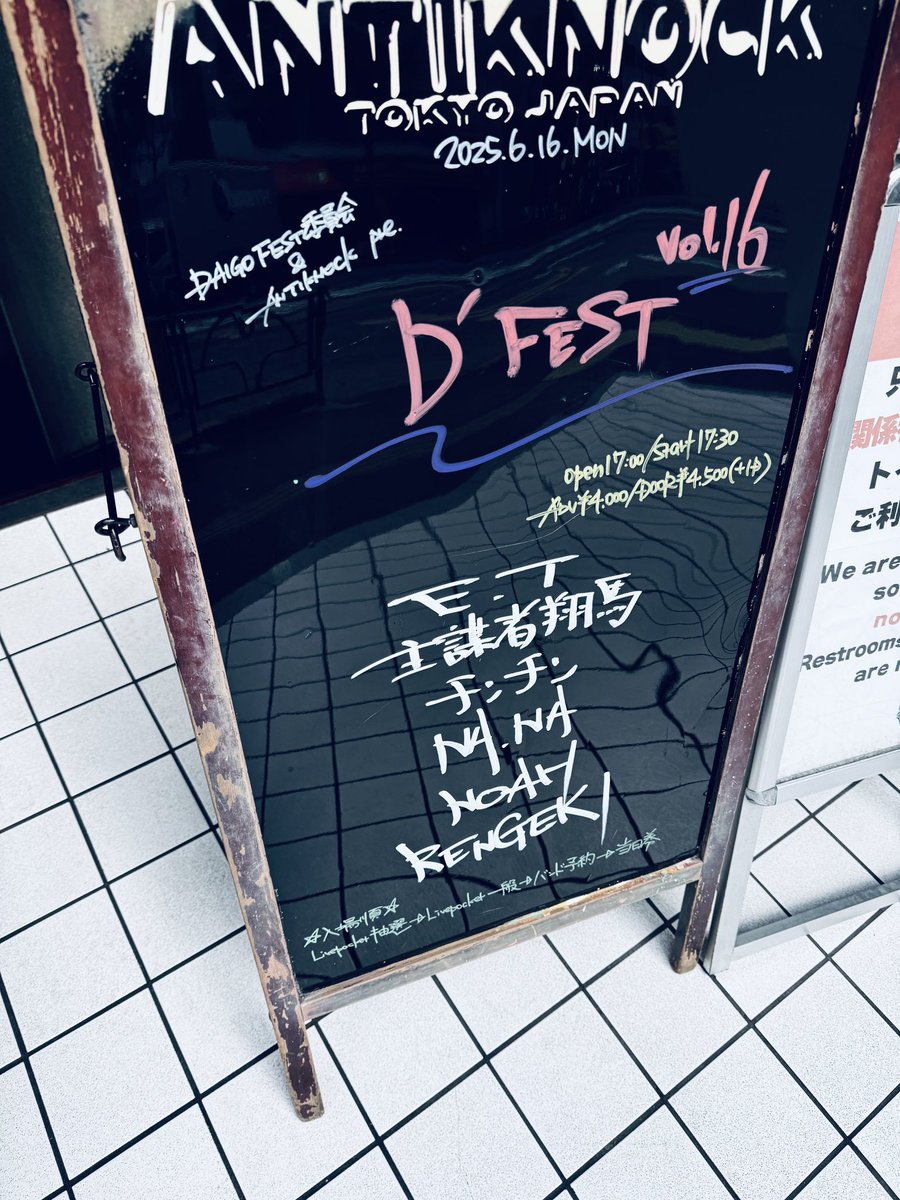 ANTIKNOCK
TOKYO JAPAN
2025.6.16.MON
DAIGO FEST委員会
&
ANTIKNOCK pre.
VOL.16
D'FEST
open17:00/Start17:30
Adv¥4.000/Door¥4.500(+1D)
主謀者翔馬
チンチン
NA.NA
NOAH
RENGEKI
☆入場順☆
Livepocket抽選→Livepocket一般→バンド予約→当日券
関係
ト
ご利
We are
so
no
Restrooms
are n